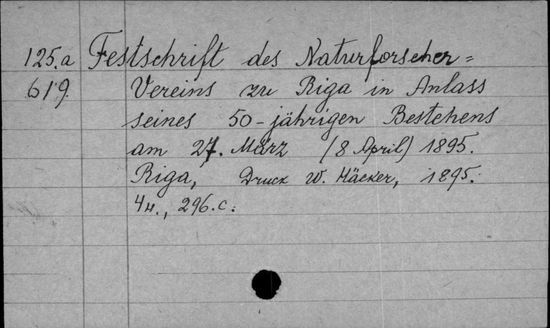 125.a Festschrift des Naturforscher=
619. Vereins zu Riga in Anlass
seines 50-jährigen Bestehens
am 27. März (8 April) 1895.
Riga, Druck W. Häcker, 1895.
4н., 296.c.